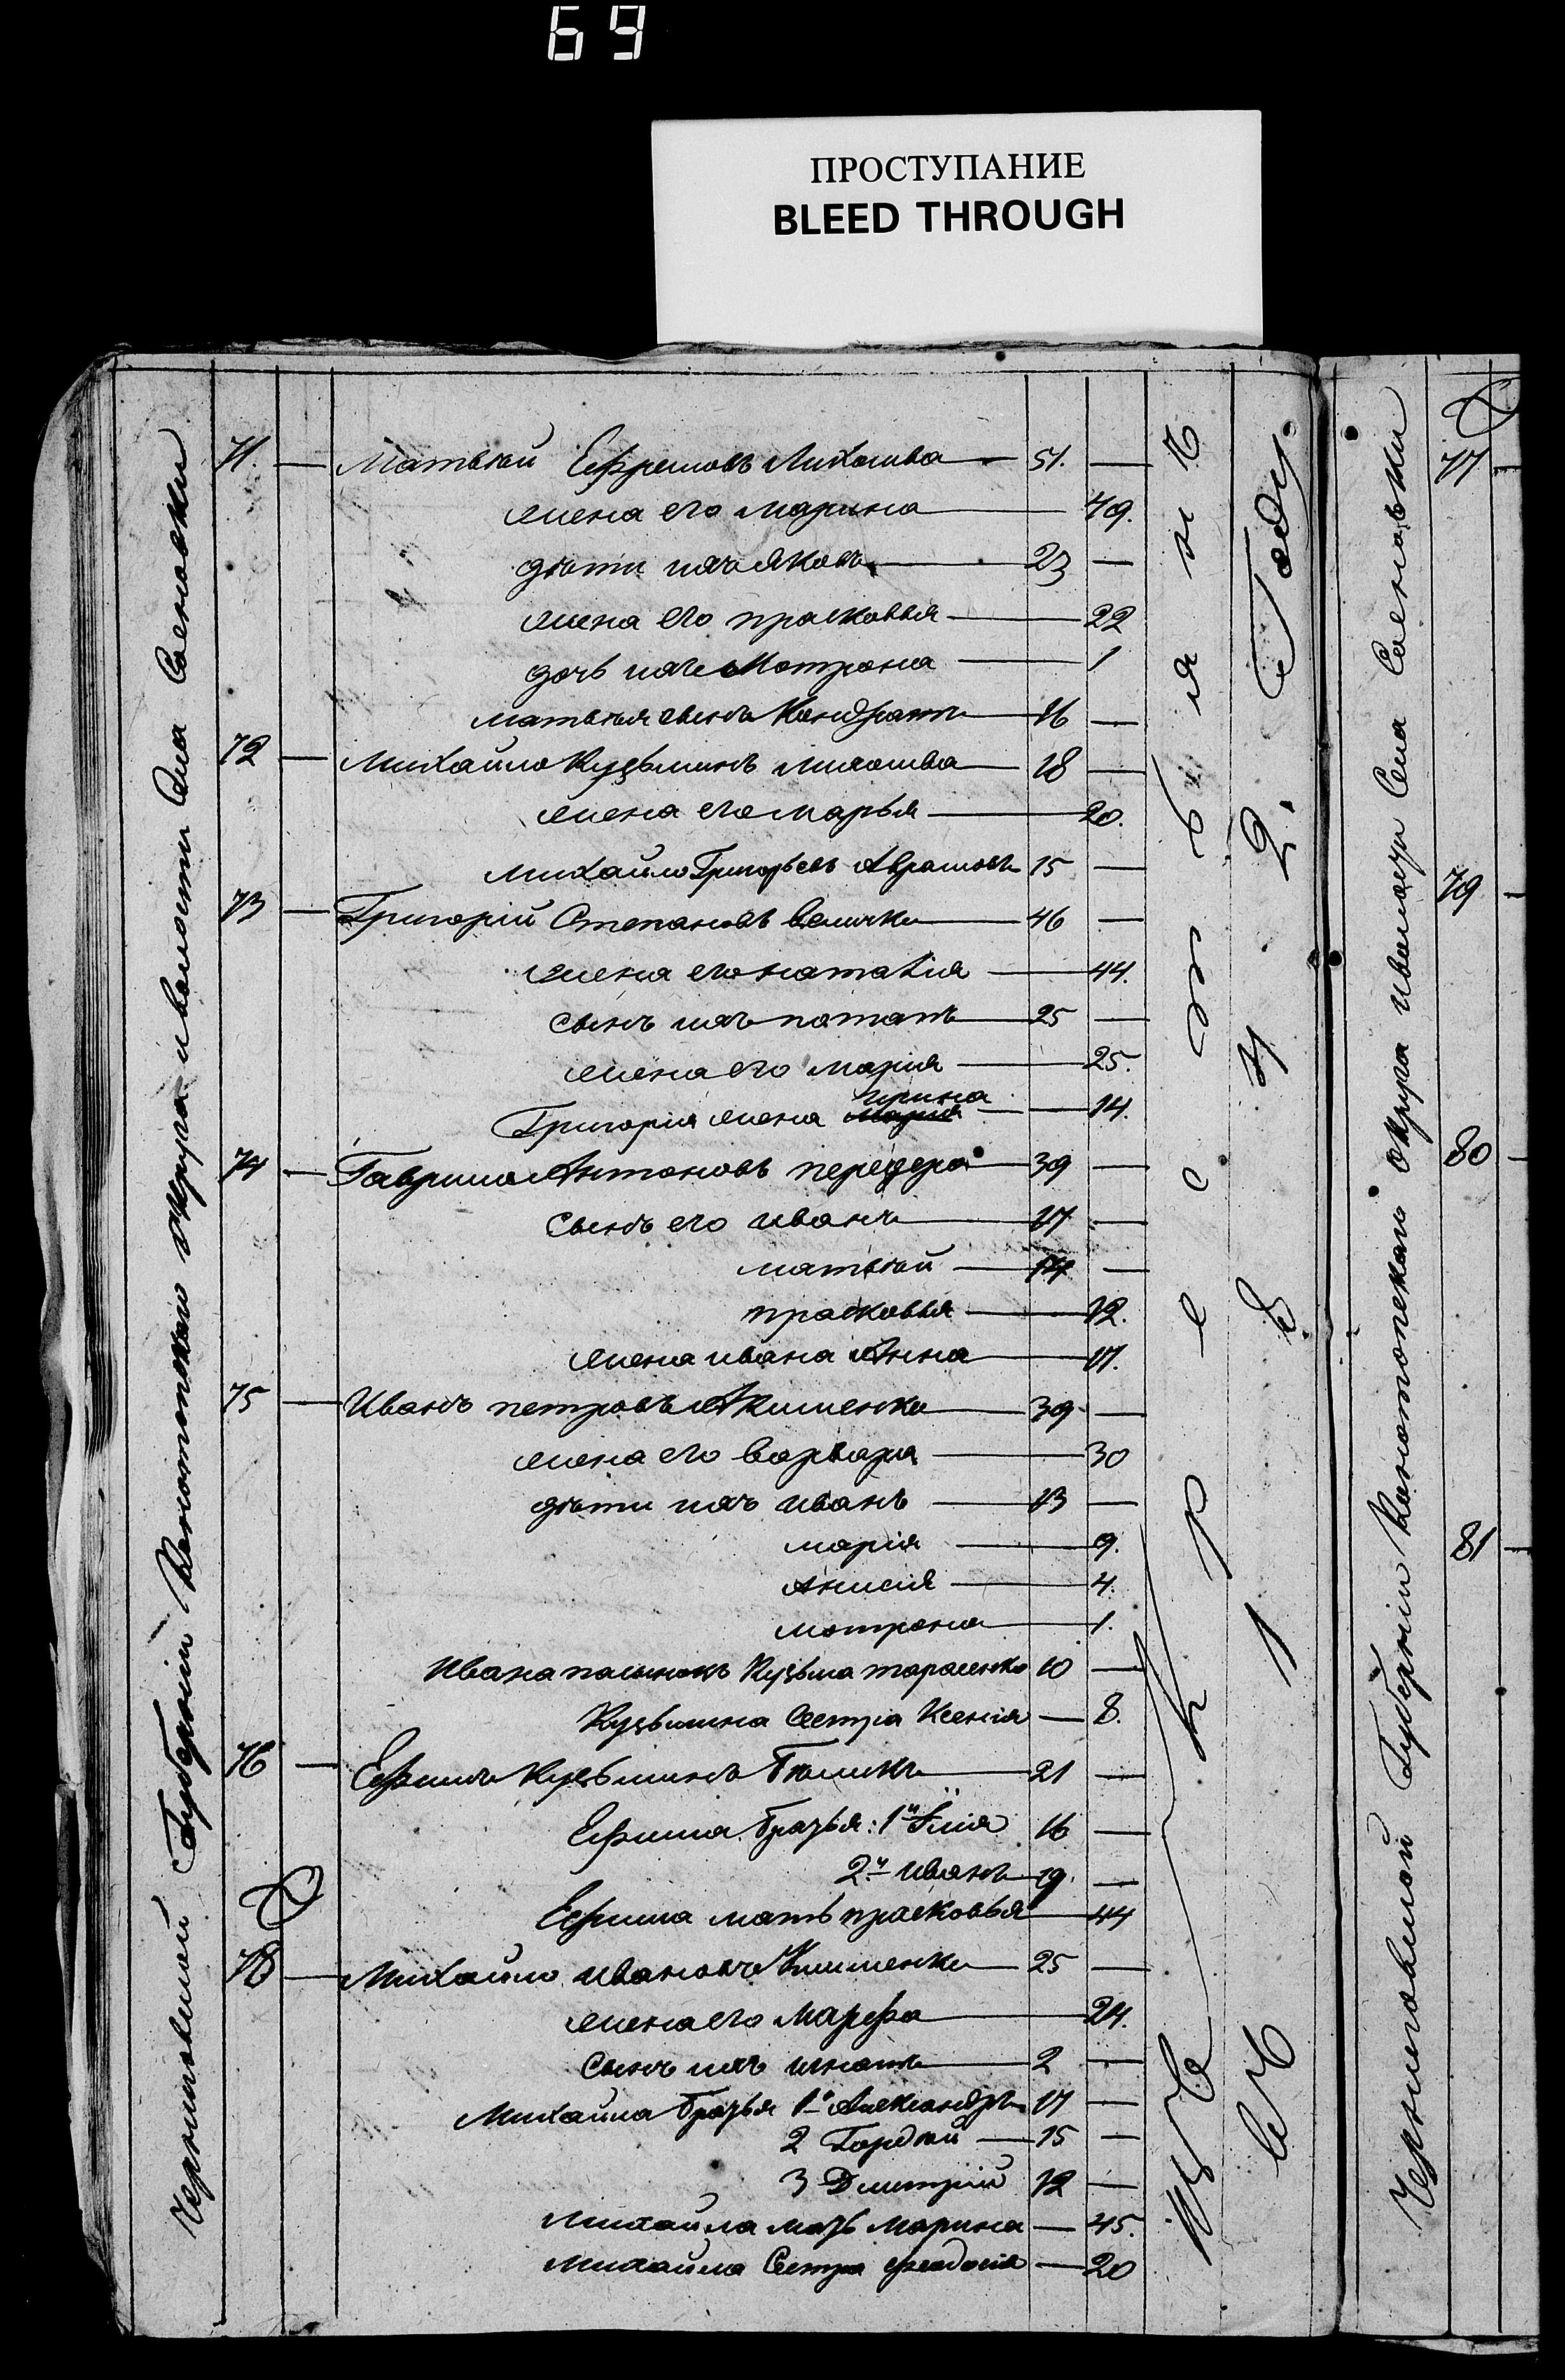 69
ПРОСТУПАНИЕ
BLEED THROUGH
Черниговской Губернiи Конотопского округа и волости Села Соеновки
71. Матвѣй Ефремовъ Лихошва 51.
жена его марина 49.
дѣти ихъ Яковъ 23
жена его прасковья 22
дочь ихъ Мотрона 1
матвѣя сынъ Кондратъ 16
72 Михайло Кузьминъ лихошва 18
жена его марья 20.
михайло Григорьевъ Аврамовъ 15
73 Григорiй Степановъ величко 46
жена его наталiя 44.
сынъ ихъ потапъ 25
жена его марiя 25.
ирина
Григорiя жена марiя 14.
74 Гаврило Антоновъ передера 39
сынъ его иванъ 17
матвѣй 14
прасковья 12.
жена ивана Анна 17.
75 Иванъ петровъ Акименко 39
жена его варвара 30
дѣти ихъ иванъ 13
марiя 9.
Анисiя 4.
мотрона 1.
ивана пасынокъ Кузьма тарасенко 10
Кузьмина Сестра Ксенiя 8.
76 Ефимъ Кузьминъ 21
Ефима братья: 1й Илiя 16
2й иванъ 19
Ефима мать прасковья 44
78 Михайло ивановъ Клименко 25
жена его Марфа 24.
сынъ ихъ игнатъ 2
Михайла братья 1й Александръ 17
2 Гордѣй 15
3 Дмитрiй 12
Михайла мать Марина 45.
михайла Сестра феодосiя 20
крестьянъ
въ 1842 Году
Черниговской Губернiи Конотопского округа и волости Села Соеновки
77
79
80
81